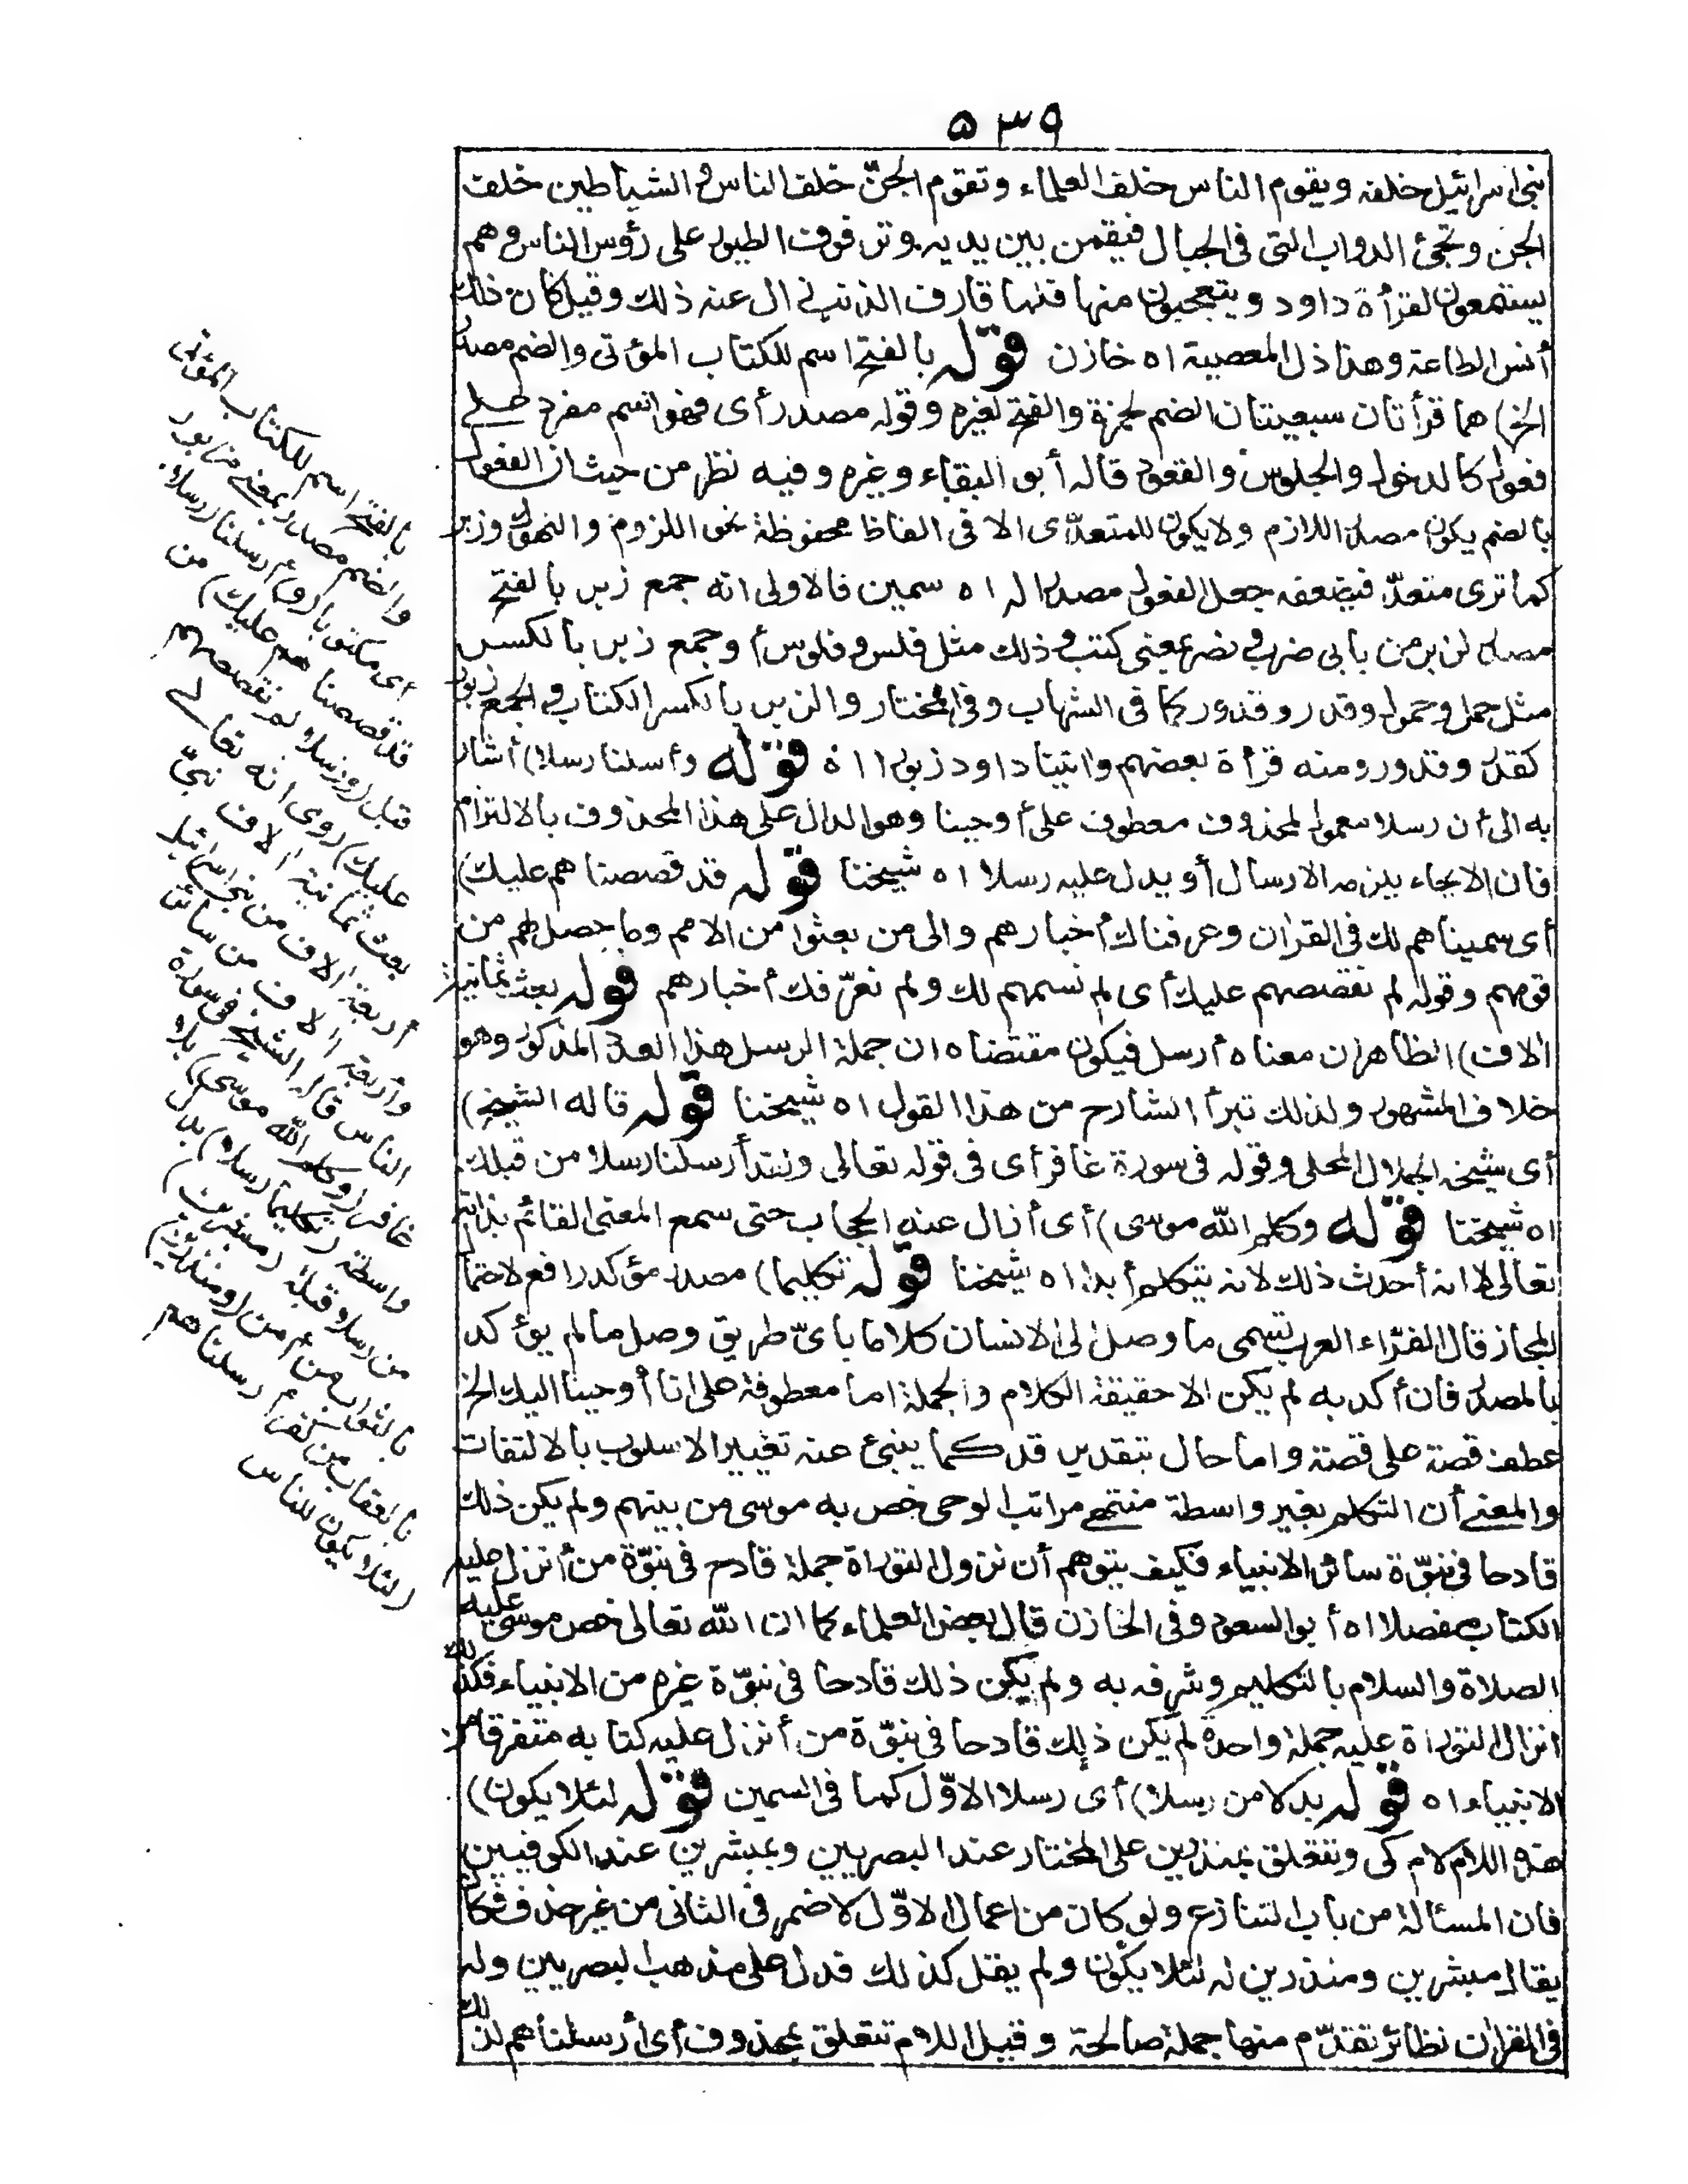 ٥٣٩
بنى اسرائيل خلفه ويقوم الناس خلف العلماء وتقوم الجنّ خلف الناس والشياطين خلف
الجن وتجئ الدواب التى فى الجبال فيقمن بين يديه وترفرف الطيور على رؤس الناس وهم
يستمعون لقرأة داود ويتعجبون منها فلما قارف الذنب زال عنه ذلك وقيل كان ذلك
أنس الطاعة وهذا ذل المعصية اه خازن قوله بالفتح اسم للكتاب المؤتى والضم مصدر
الخ) هما قرأتان سبعيتان الضم لحمزة والفتح لغيره وقوله مصدر أى فهو اسم مفرد على
فعول كالدخول والجلوس والقعود قاله أبو البقاء وغيره وفيه نظر من حيث ان الفعول
بالضم يكون مصدر اللازم ولا يكون للمتعدّى الا فى الفاظ محفوظة نحو اللزوم والنهوك وزبر
كما ترى متعدّ فيضعف جعل الفعول مصدرا له اه سمين فالاولى انه جمع زبر بالفتح
مصدر لزبر من بابى ضرب ونصر بمعنى كتب وذلك مثل فلس وفلوس أو جمع زبر بالكسر
مثل حمل وحمول وقدر وقدور كما فى الشهاب وفى المختار والزبر بالكسر الكتاب والجمع زبور
كقدر وقدور ومنه قرأة بعضهم واتينا داود زبورا اه قوله وأرسلنا رسلا) أشار
به الى أن رسلا معمول لمحذوف معطوف على أوحينا وهو الدال على هذا المحذوف بالالتزام
فان الايحاء يلزمه الارسال أو يدل عليه رسلا اه شيخنا قوله قد قصصناهم عليك)
أى سميناهم لك فى القران وعرفناك أخبارهم والى من بعثوا من الامم وما حصل لهم من
قومهم وقوله لم نقصصهم عليك أى لم نسمهم لك ولم نعرّفك أخبارهم قوله بعث ثمانية
الاف) الظاهر ان معناه أرسل فيكون مقتضاه ان جملة الرسل هذا العدد المذكور وهو
خلاف المشهور ولذلك تبرأ الشارح من هذا القول اه شيخنا قوله قاله الشيخ)
أى شيخه الجلال المحلى وقوله فى سورة غافر أى فى قوله تعالى ولقد أرسلنا رسلا من قبلك
اه شيخنا قوله وكلم الله موسى) أى أزال عنه الحجاب حتى سمع المعنى القائم بذاته
تعالى لا انه أحدث ذلك لانه يتكلم أبدا اه شيخنا قوله تكليما) مصدر مؤكد رافع لاحتمال
المجاز قال الفرّاء العرب تسمى ما وصل الى الانسان كلاما باىّ طريق وصل ما لم يؤكد
بالمصدر فان أكد به لم يكن الا حقيقة الكلام والجملة اما معطوفة على انا أوحينا اليك الخ
عطف قصة على قصة واما حال بتقدير قد كما ينبئ عنه تغيير الاسلوب بالالتفات
والمعنى أن التكلم بغير واسطة منتهى مراتب الوحى خص به موسى من بينهم ولم يكن ذلك
قادحا فى نبوّة سائر الانبياء فكيف يتوهم أن نزول التوراة جملة قادح فى نبوّة من أنزل عليه
الكتاب مفصلا اه أبو السعود وفى الخازن قال بعض العلماء كما ان الله تعالى خص موسى عليه
الصلاة والسلام بالتكليم وشرفه به ولم يكن ذلك قادحا فى نبوّة غيره من الانبياء فكذلك
انزال التوراة عليه جملة واحدة لم يكن ذلك قادحا فى نبوّة من أنزل عليه كتابه متفرقا من
الانبياء اه قوله بدلا من رسلا) أى رسلا الاوّل كما فى السمين قوله لئلا يكون)
هذه اللام لام كى وتتعلق بمنذرين على المختار عند البصريين وبمبشرين عند الكوفيين
فان المسألة من باب التنازع ولو كان من اعمال الاوّل لاضمر فى الثانى من غير حذف فكان
يقال مبشرين ومنذرين له لئلا يكون ولم يقل كذلك فدل على مذهب البصريين وله
فى القران نظائر تقدّم منها جملة صالحة وقيل اللام تتعلق بمحذوف أى أرسلناهم لذلك
بالفتح اسم للكتاب المؤتى
والضم مصدر بمعنى مزبور
أى مكتوبا (و) أرسلنا (رسلا
قد قصصناهم عليك) من
قبل (ورسلا لم نقصصهم
عليك) روى انه تعالى
بعث ثمانية الاف نبىّ
أربعة الاف من بنى اسرائيل
وأربعة الاف من سائر
الناس قاله الشيخ فى سورة
غافر (وكلم الله موسى) بلا
واسطة (تكليما رسلا) بدل
من رسلا قبله (مبشرين)
بالثواب من أمن (ومنذرين)
بالعقاب من كفر أرسلناهم
(لئلا يكون للناس